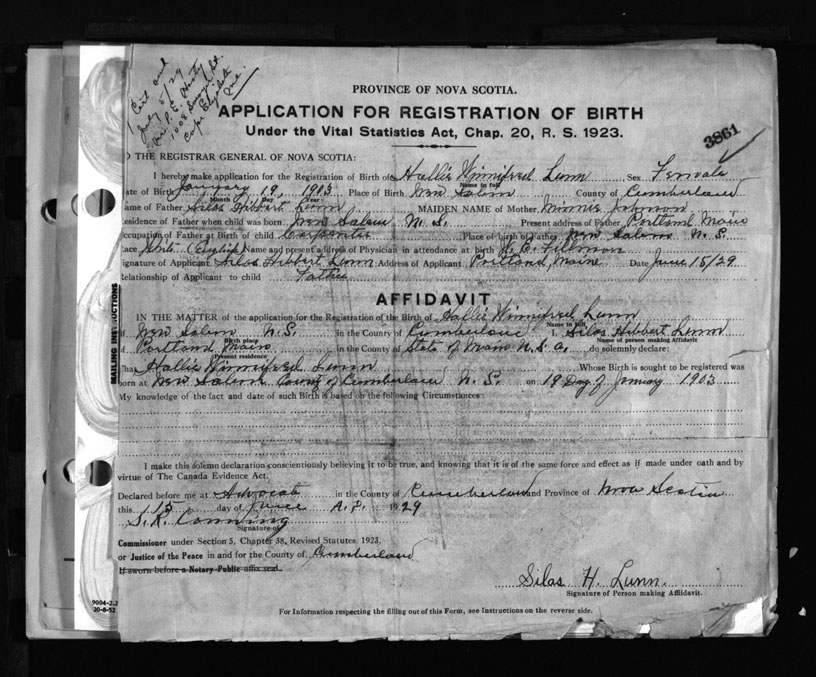 1 Cert and
July 5/29
1008
Cape Elizabeth
Me.
PROVINCE OF NOVA SCOTIA.
APPLICATION FOR REGISTRATION OF BIRTH
Under the Vital Statistics Act, Chap. 20, R. S. 1923.
3861
O THE REGISTRAR GENERAL OF NOVA SCOTIA:
I hereby make application for the Registration of Birth of Hallie Winnifred Lunn Sex Female
Name in full
ate of Birth January 19, 1903 Place of Birth New Salem County of Cumberland
Month Day Year
ame of Father Silas Hibbert Lunn MAIDEN NAME of Mother Minnie Johnson
Residence of Father when child was born New Salem N.S. Present address of Father Portland Maine
Occupation of Father at Birth of child Carpenter Place of Birth of Father New Salem N.S.
Race White English Name and present address of Physician in attendance at birth Hillman
Signature of Applicant Silas Hibbert Lunn Address of Applicant Portland, Maine Date June 15/29
Relationship of Applicant to child Father
AFFIDAVIT
IN THE MATTER of the application for the Registration of the Birth of Hallie Winnifred Lunn
Name in full
of New Salem N.S. in the County of Cumberland I, Silas Hibbert Lunn
Birth place Name of person making Affidavit
of Portland Maine in the County of State of Maine U.S.A. do solemnly declare:
Present residence
That Hallie Winnifred Lunn Whose Birth is sought to be registered was
born at New Salem County of Cumberland N.S. on 19 Day of January 1903
My knowledge of the fact and date of such Birth is based on the following Circumstances:
I make this solemn declaration conscientiously believing it to be true, and knowing that it is of the same force and effect as if made under oath and by
virtue of The Canada Evidence Act.
Declared before me at Advocate in the County of Cumberland and Province of Nova Scotia
this 15 day of June A.D. 1929
S.K. Conning
Signature of
Commissioner under Section 5, Chapter 38, Revised Statutes 1923.
or Justice of the Peace in and for the County of Cumberland
If sworn before a Notary Public affix seal.
Silas H. Lunn.
Signature of Person making Affidavit.
For Information respecting the filling out of this Form, see Instructions on the reverse side.
MAILING INSTRUCTIONS
9004-2.2
20-8-52